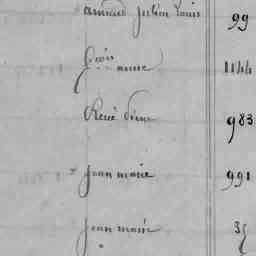 armand julien Louis 99
1144
René 983
jean marie 991
jean marie